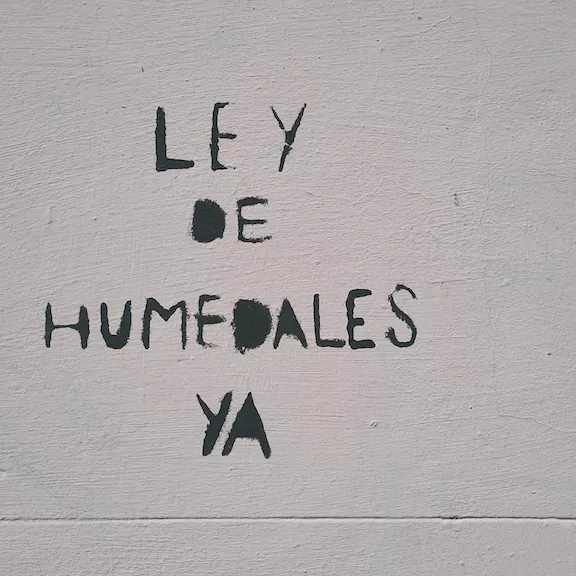 LEY
DE
HUMEDALES
YA